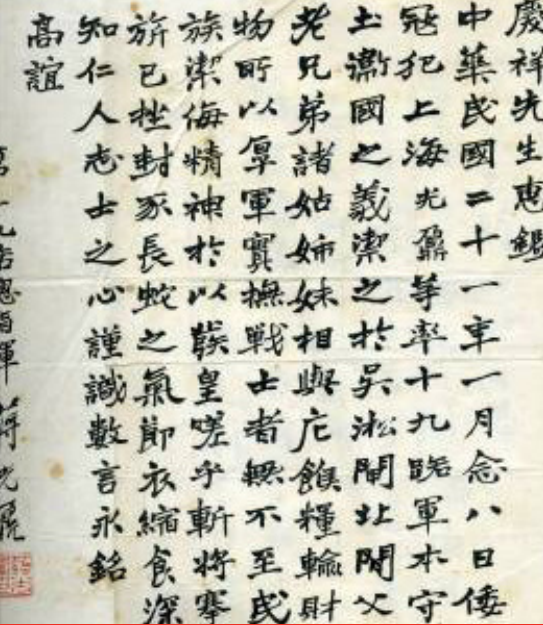 慶祥先生惠鑑
中華民國二十一年一月念八日倭
寇犯上海光鼐等率十九路軍本守
土衞國之義禦之於吳淞閘北閒父
老兄弟諸姑姊妹相與庀餱糧輸財
物所以厚軍實撫戰士者無不至民
族禦侮精神於以發皇嗟乎斬將搴
旂已挫封豕長蛇之氣節衣縮食深
知仁人志士之心謹識數言永銘
高誼
第十九路總指揮蔣光鼐